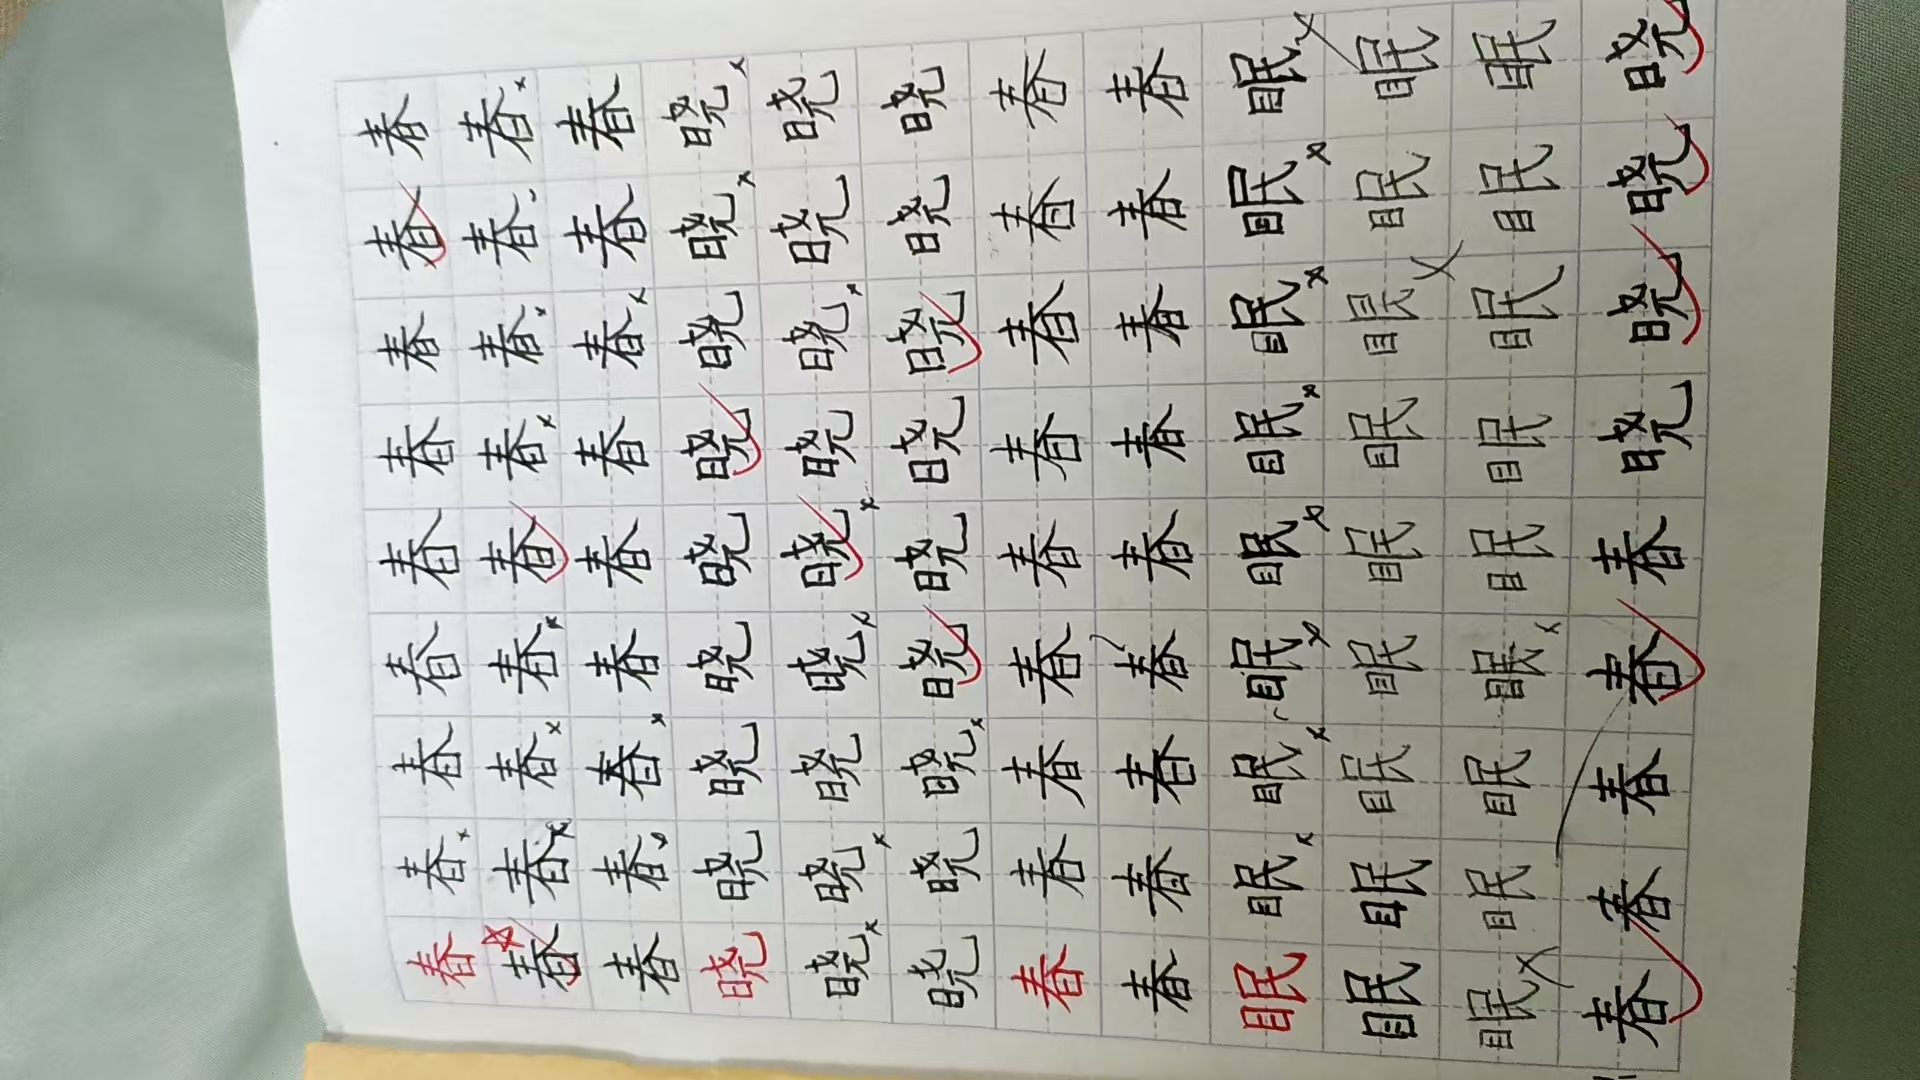 春春春春春春春春春
春春春春春春春春春
春春春春春春春春春
晓晓晓晓晓晓晓晓晓
晓晓晓晓晓晓晓晓晓
晓晓晓晓晓晓晓晓晓
春春春春春春春春春
春春春春春春春春春
眠眠眠眠眠眠眠眠眠
眠眠眠眠眠眠眠眠眠
眠眠眠眠眠眠眠眠眠
春春春春春晓晓晓晓